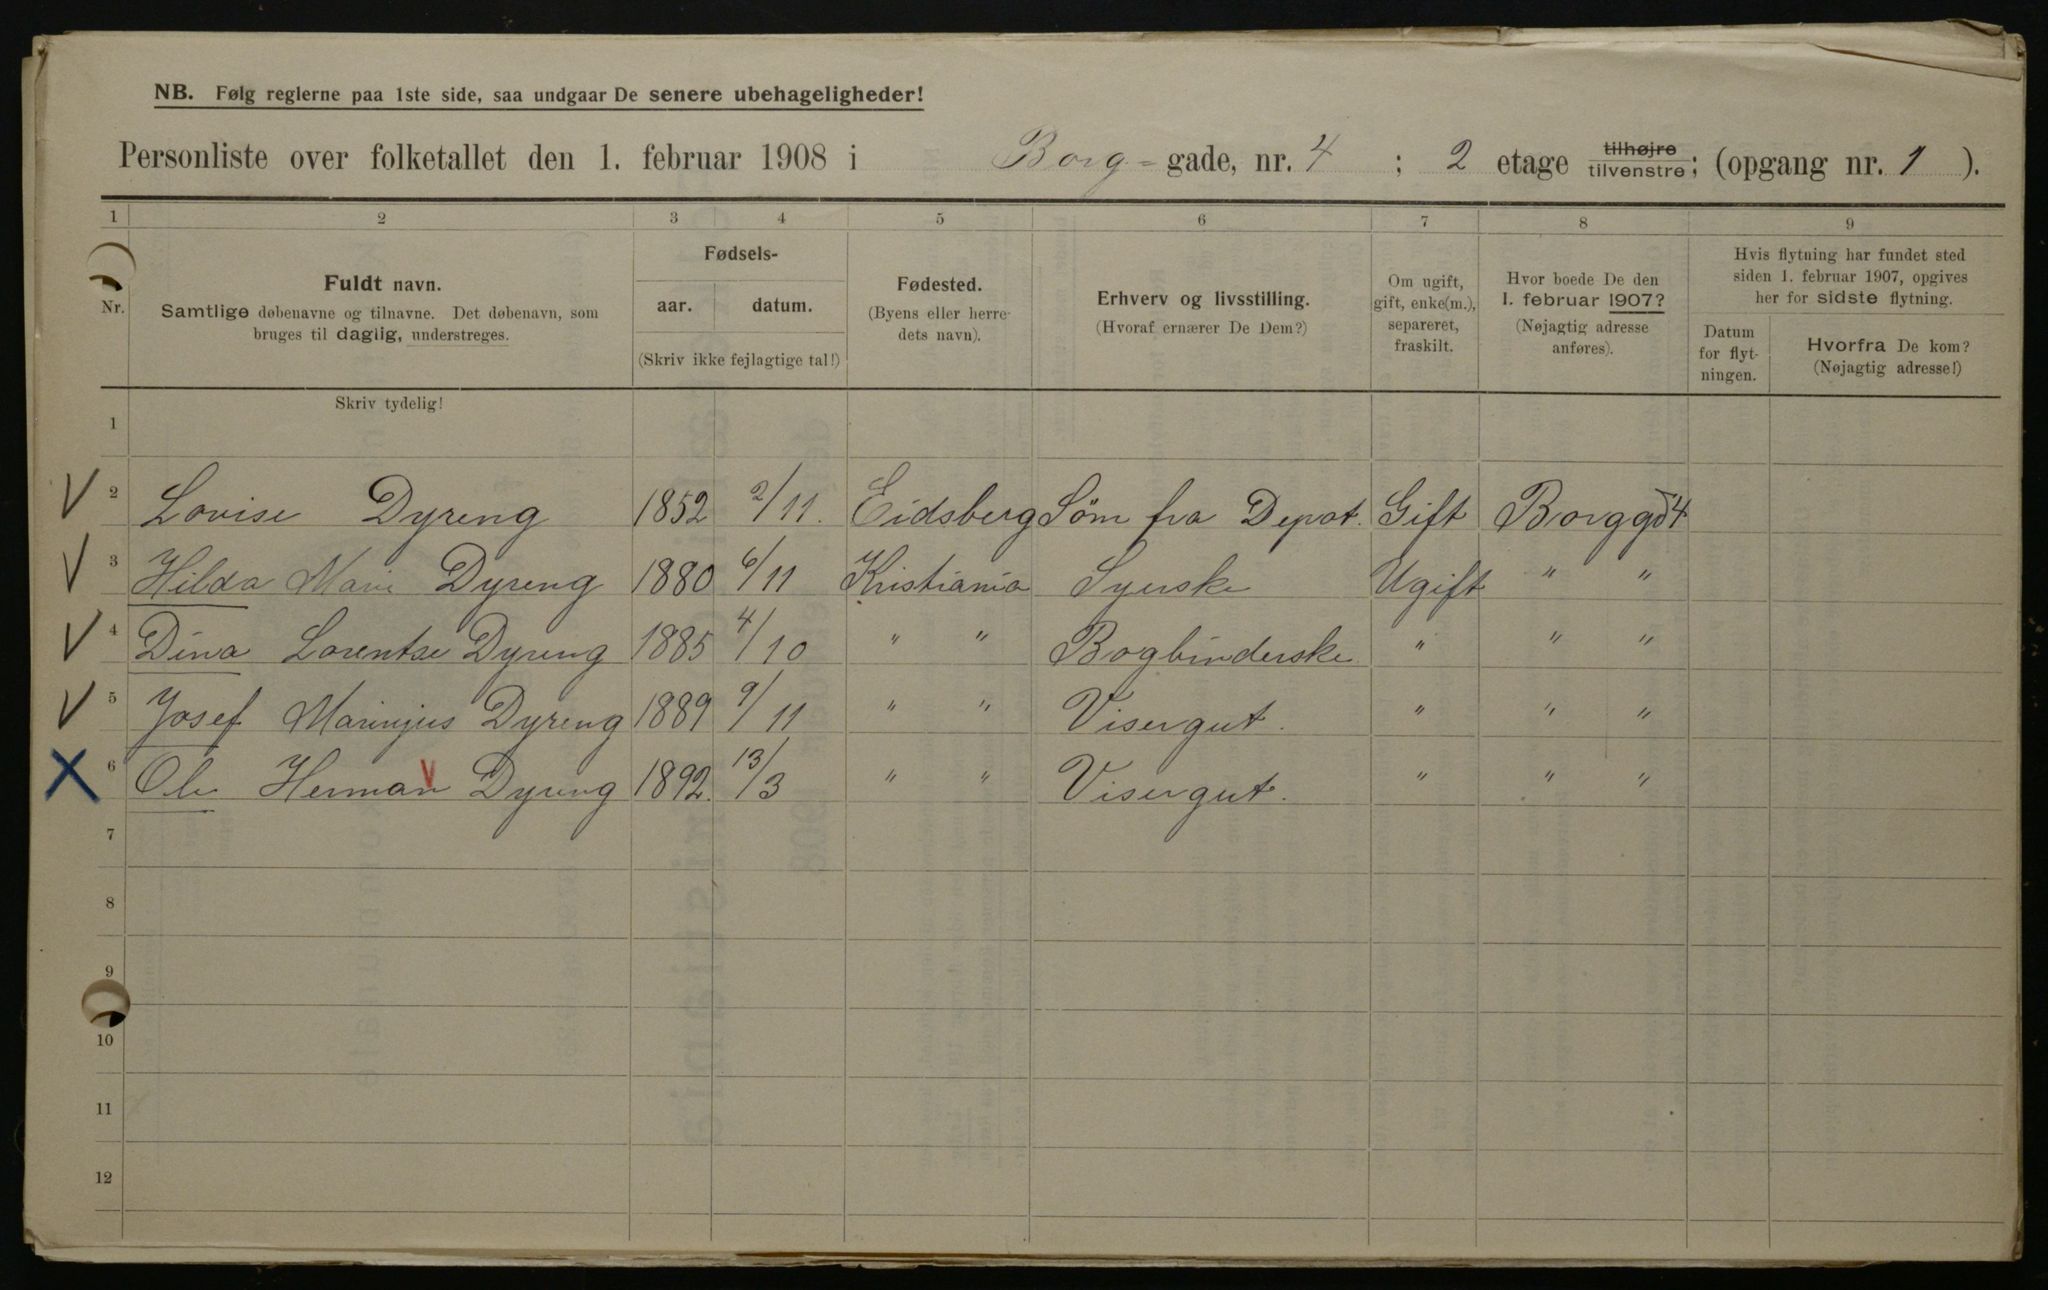 NB. Følg reglerne paa 1ste side, saa undgaar De senere ubehageligheder!
Personliste over folketallet den 1. februar 1908 i Borg- gade, nr. 4 ; 2 etage tilhøjre tilvenstre; (opgang nr. 1 ).
1 2 3 4 5 6 7 8 9
Nr.
Fuldt navn.
Samtlige døbenavne og tilnavne. Det døbenavn, som
bruges til daglig, understreges.
Fødsels-
aar. datum.
(Skriv ikke fejlagtige tal!)
Fødested.
(Byens eller herre-
dets navn).
Erhverv og livsstilling.
(Hvoraf ernærer De Dem?)
Om ugift,
gift, enke(m.),
separeret,
fraskilt.
Hvor boede De den
1. februar 1907?
(Nøjagtig adresse
anføres).
Hvis flytning har fundet sted
siden 1. februar 1907, opgives
her for sidste flytning.
Datum
for flyt-
ningen.
Hvorfra De kom?
(Nøjagtig adresse!)
Skriv tydelig!
1
V 2 Lovise Dyreng 1852 2/11. Eidsberg Søm fra Depot. Gift Borggd 4
V 3 Hilda Marie Dyreng 1880 6/11 Kristiania Syerske Ugift " "
V 4 Dina Lorentse Dyreng 1885 4/10 " " Bogbinderske " " "
V 5 Josef Marinjus Dyreng 1889 9/11 " " Visergut. " " "
X 6 Ole Herman V Dyreng 1892. 13/3 " " Visergut. " " "
7
8
9
10
11
12